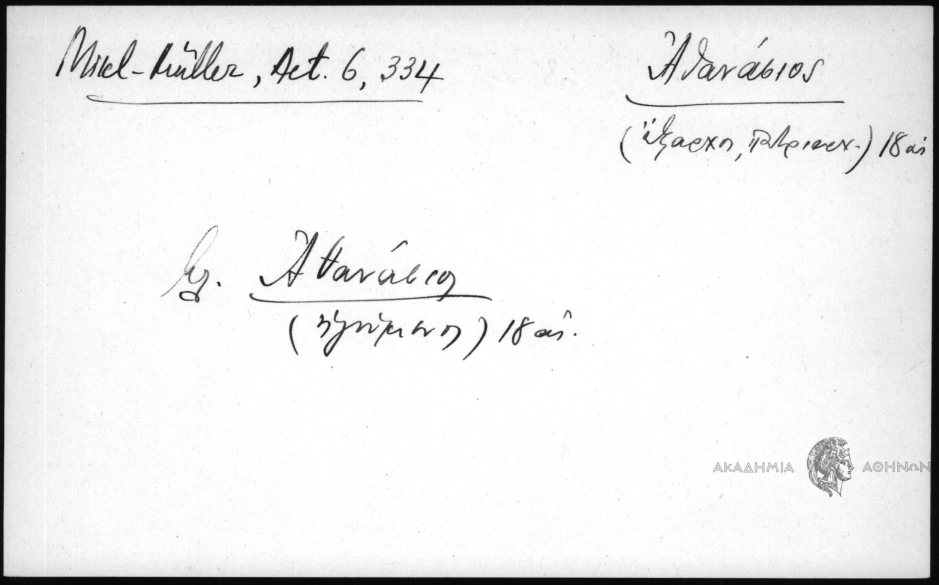 Mikl-Müller, Act. 6, 334
Ἀθανάσιος
(ἔξαρχος, πατριαρχ.) 18 αἰ
Ἀθανάσιος
(ἡγούμενος) 18 αἰ.
ΑΚΑΔΗΜΙΑ ΑΘΗΝΩΝ